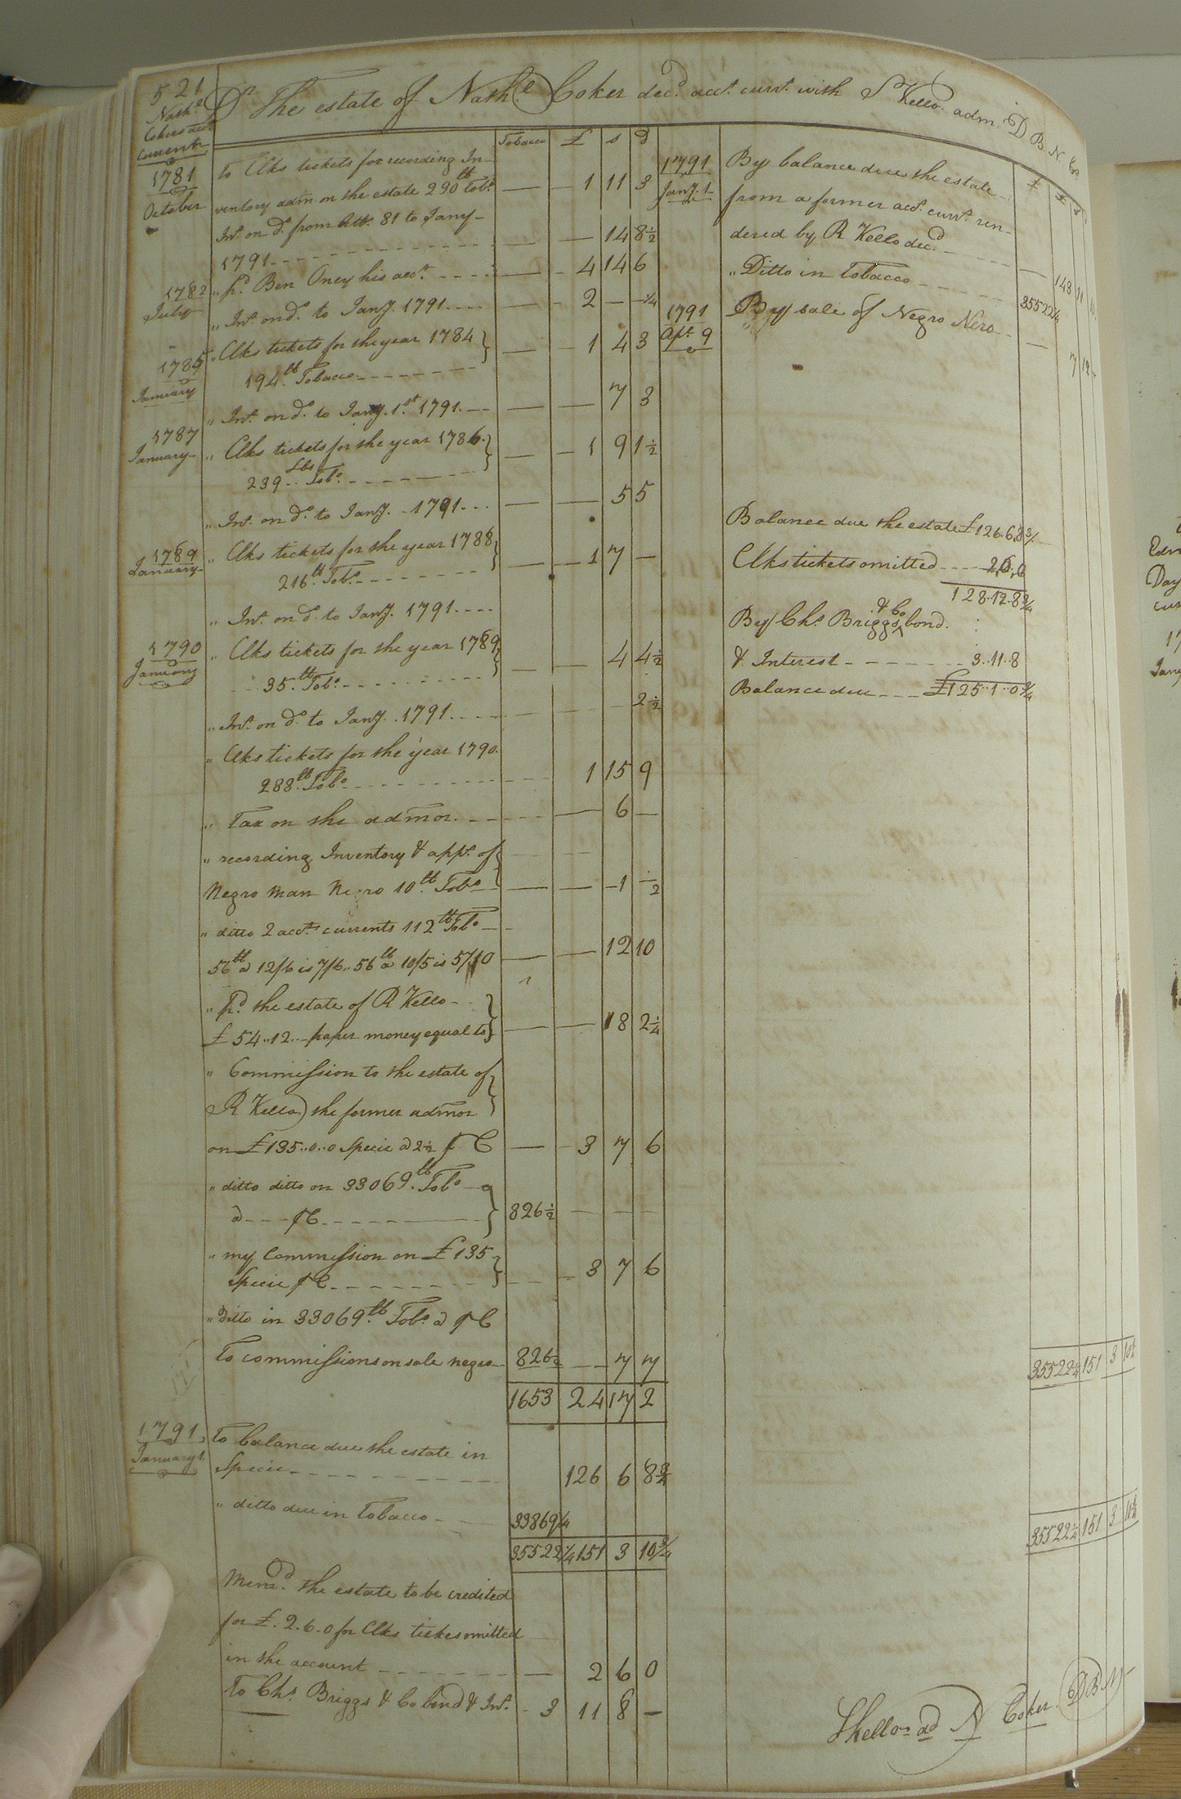 521
Nathl
Cokers acct
Current
Dr The estate of Nathl Coker decd acct currt with S Kello adm. D B N Co
Tobacco £ s d
1781
October
To Clks tickets for recording In-
ventory adm on the estate 290 lb Tobo — — 1 11 3
Int. on do. from Octr. 81 to Jany
1791 — — 14 8½
1782
July
" pd. Ben Oney his acct. — 4 14 6
" Int. on do. to Jany. 1791 — 2 — ¼
1785
January
" Clks tickets for the year 1784
194 lb Tobacco — 1 4 3
" Int. on do. to Jany. 1st 1791. — — 7 3
1787
January
" Clks tickets for the year 1786.
239 lbs Tobo. — 1 9 1½
" Int. on do. to Jany. 1791 — — 5 5
1789
January
" Clks tickets for the year 1788
216 lb Tobo. — 1 7 —
" Int. on do. to Jany. 1791
1790
January
" Clks tickets for the year 1789
35 lb Tobo. — — 4 4½
" Int. on do. to Jany. 1791 2½
" Clks tickets for the year 1790
288 lb Tobo. 1 15 9
" Tax on the admor. — 6 —
" recording Inventory & appt. of
Negro man Nero 10 lb Tobo — — 1 ½
" ditto 2 accts currents 112 lb Tobo
56 lb a 12/6 is 7/6.. 56 lb a 10/5 is 5/10 — — 12 10
" pd. the estate of R Kello
£ 54..12.. paper money equal to — — 18 2¼
" Commission to the estate of
R Kello the former admor
on £135..0..0 Specie a 2½ p C — 3 7 6
" ditto ditto on 33069 lb Tobo
a — p C 826½ — — —
" my Commission on £135
Specie p C — 3 7 6
" Ditto in 33069 lb Tobo. a p C
To commissions on sale negro 826½ — 7 7
1653 24 17 2
1791
January 1
To balance due the estate in
Specie 126 6 8¾
" ditto due in Tobacco 33869¼
35522¼ 151 3 10¾
Memd. the estate to be credited
for £. 2.6.0 for Clks tickes omitted
in the account — 2 6 0
To Chs. Briggs & Co bond & Int. 3 11 8 —
£ s
1791
Jany. 1
By balance due the estate
from a former acct. currt. ren-
dered by R Kello decd. — 143 11
" Ditto in Tobacco 35522¼
1791
Apl. 9
By sale of Negro Nero — 7
Balance due the estate £126.6.8¾
Clks tickets omitted 2.6.0
128.12.8¾
By Chs. Briggs & Co bond
& Interest 3.11.8
Balance due £125..1..0¾
35522¼ 151 3 10¾
35522¼ 151 3 10¾
S Kello ad N Coker D B N